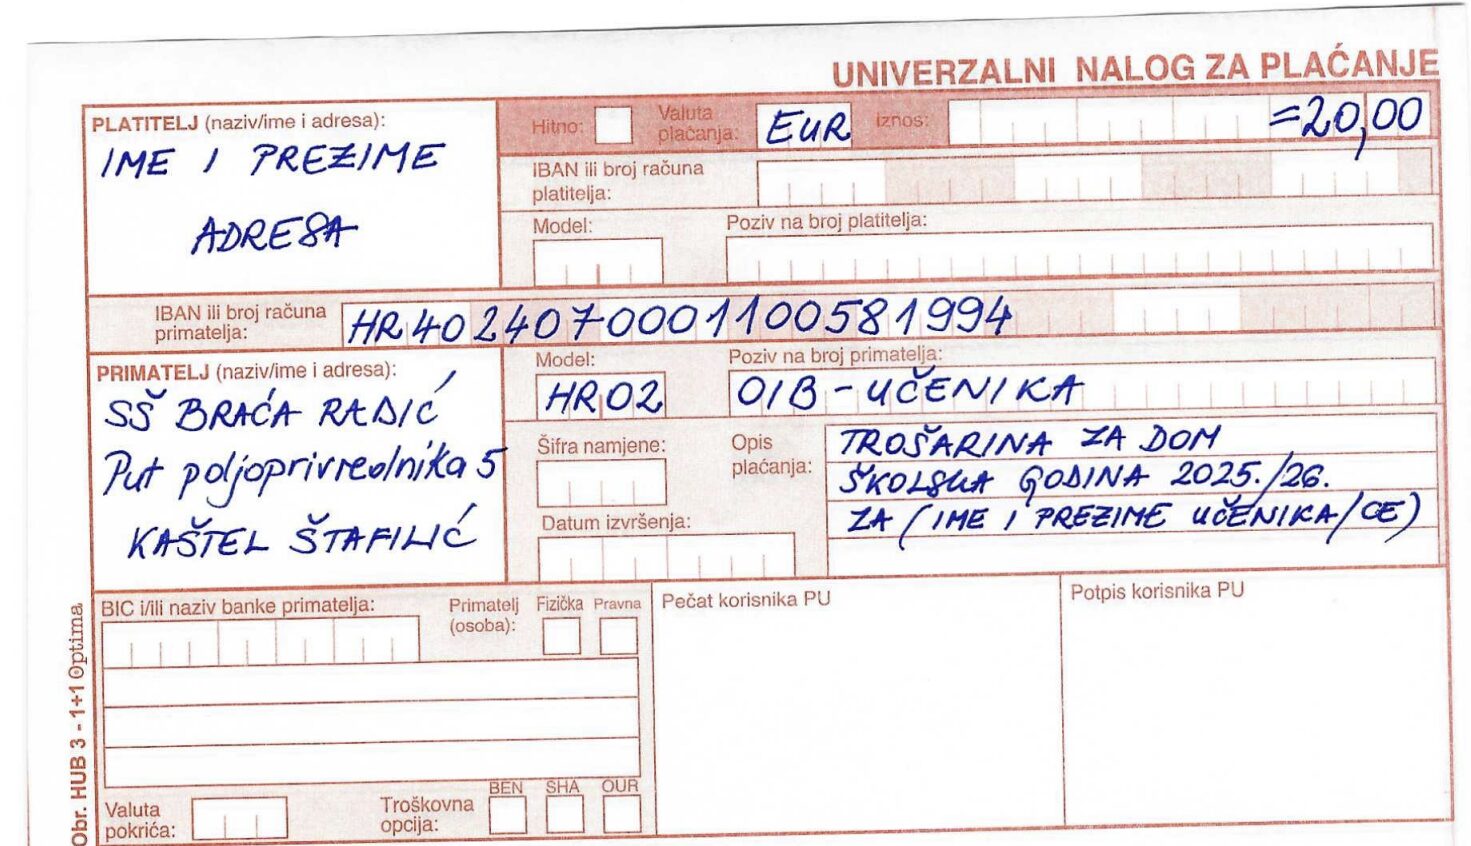 UNIVERZALNI NALOG ZA PLAĆANJE
PLATITELJ (naziv/ime i adresa):
IME I PREZIME
ADRESA
Hitno:
Valuta plaćanja:
EUR
Iznos:
=20,00
IBAN ili broj računa platitelja:
Model:
Poziv na broj platitelja:
IBAN ili broj računa primatelja:
HR4024070001100581994
PRIMATELJ (naziv/ime i adresa):
SŠ BRAĆA RADIĆ
Put poljoprivrednika 5
KAŠTEL ŠTAFILIĆ
Model:
HR02
Poziv na broj primatelja:
OIB - UČENIKA
Šifra namjene:
Datum izvršenja:
Opis plaćanja:
TROŠARINA ZA DOM
ŠKOLSKA GODINA 2025./26.
ZA (IME I PREZIME UČENIKA/CE)
BIC i/ili naziv banke primatelja:
Primatelj (osoba):
Fizička
Pravna
Pečat korisnika PU
Potpis korisnika PU
Valuta pokrića:
Troškovna opcija:
BEN
SHA
OUR
Obr. HUB 3 - 1+1 Optima